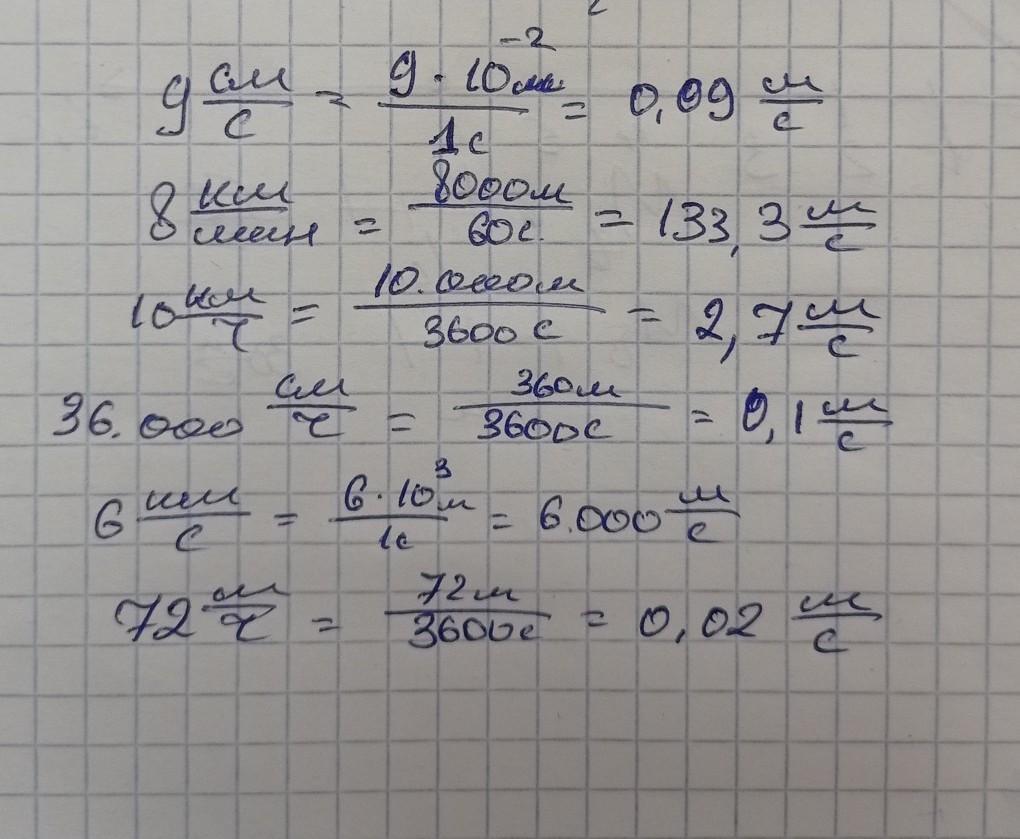 9 см/с = 9 · 10⁻² м / 1с = 0,09 м/с
8 км/мин = 8000м / 60с. = 133,3 м/с
10 км/ч = 10.000м / 3600с = 2,7 м/с
36.000 см/ч = 360м / 3600с = 0,1 м/с
6 км/с = 6 · 10³ м / 1с = 6.000 м/с
72 м/ч = 72м / 3600с = 0,02 м/с